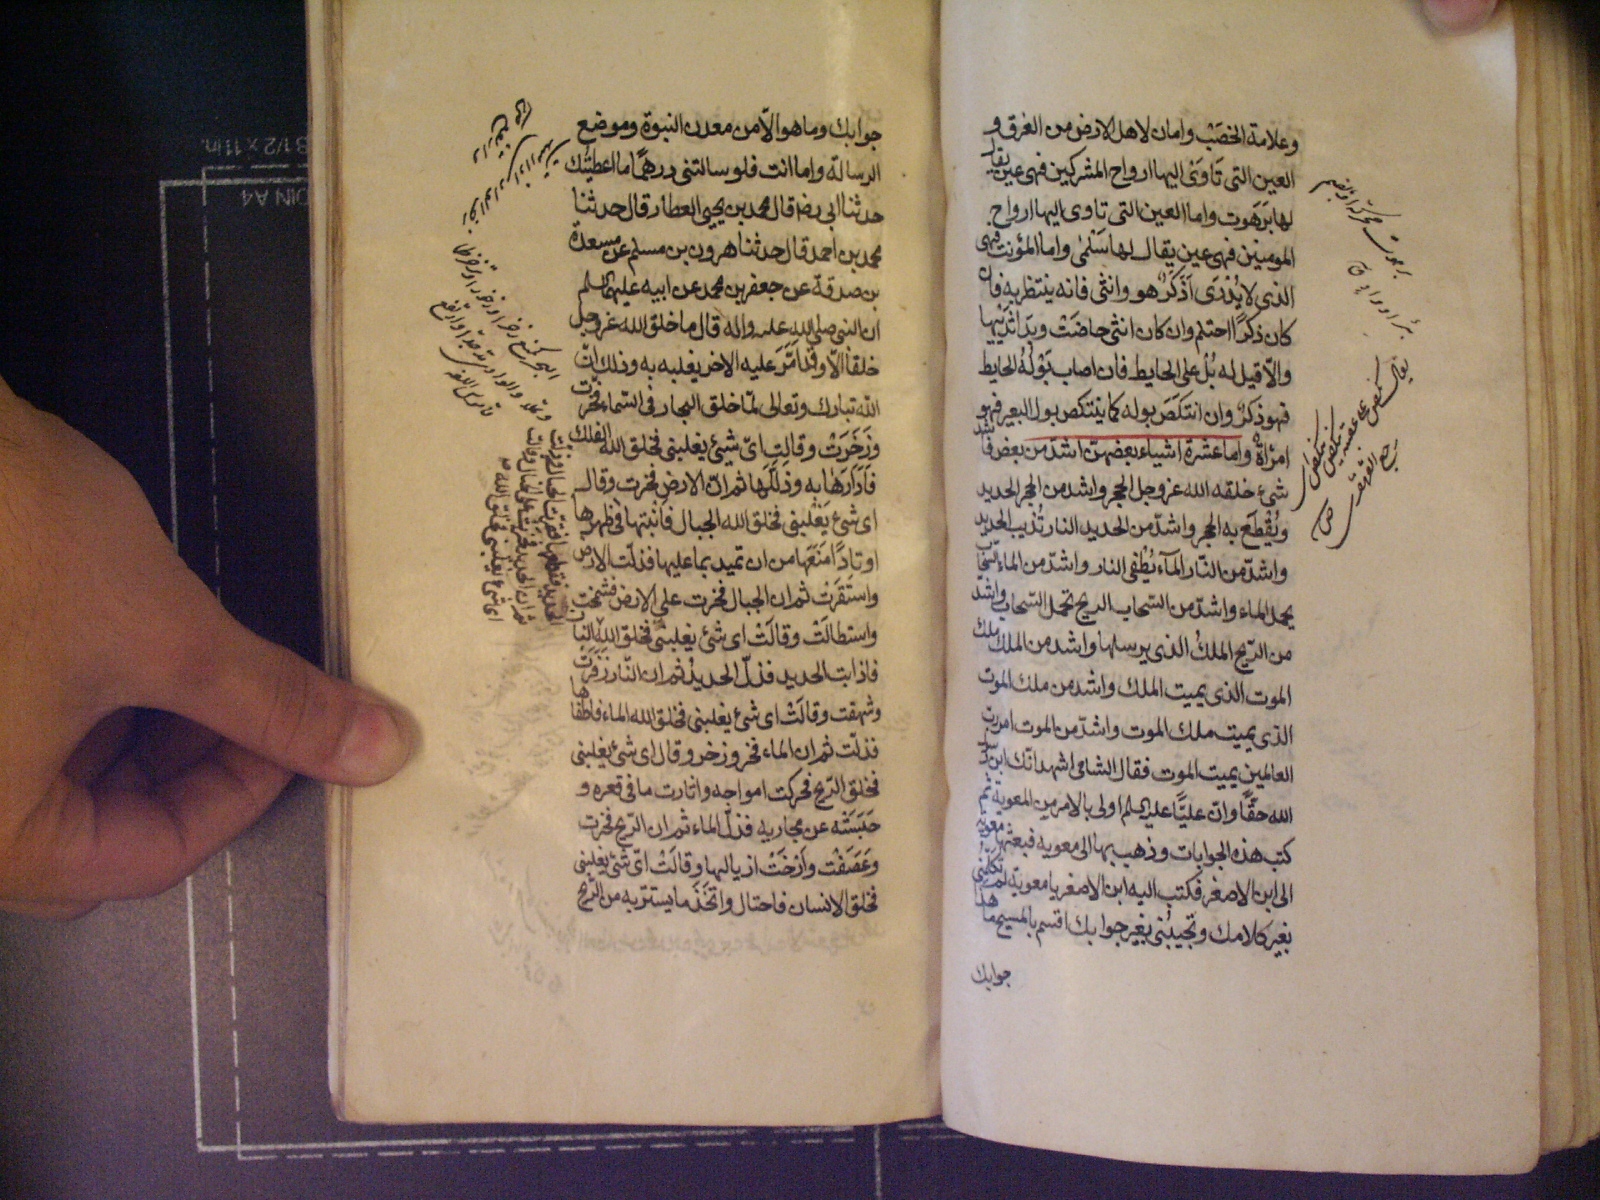 وعلامة الخصب وامان لاهل الارض من الغرق و
العين التى تَاوَىْ اليها ارواح المشركين فهى عين يقال
لها بَرَهَوت واما العين التى تاوى اليها ارواح
المومنين فهى عين يقال لها سَلْمٰى واما المؤنث فهى
الذى لا يُدْرٰى أَذَكَرٌ هو وانثى فانه ينتظر به فان
كان ذكرًا احتلم وان كان انثى حاضَتْ وبدَا ثديَيها
والاّ قيل له بُلْ على الحايط فان اصاب بَوْلُهُ الحايط
فهو ذكرٌ وان انتكَصَ بوله كما ينتكص بول البعير فهو
امرْاةٌ واما عشرة اشياء بعضهنّ اشدّ من بعض فاشد
شئ خلقه الله عز وجل الحجر واشد من الحجر الحديد
ويُقْطَع به الحجر واشدّ من الحديد النار تُذيب الحديد
واشدّ من النّار المآء يُطْفى النار واشدّ من الماء السّحاب
يحمل الماء واشدّ من السّحاب الريح تحمل السّحاب واشدّ
من الرّيح الملكُ الذى يرسلها واشد من الملك ملك
الموت الذى يميت الملك واشد من ملك الموت
الذى يميت ملك الموت واشدّ من الموت امر ربّ
العالمين يميت الموت فقال الشامى اشهد انّك ابن رسول
الله حقًّا وانّ عليًّا عليه السلم اولى بالامر من المعوية ثم
كتب هذه الجوابات وذهب بها الى معويه فبعثها معوية
الى ابن الاصفر فكتب اليه ابن الاصفر يا معوية لمَ تكلّمنى
بغير كلامك وتجيبُنى بغير جوابك اقسم بالمسيح ما هذا
جوابك
جوابك وما هو الاّ من معدن النبوة وموضع
الرسالة واما انت فلو سالتنى درهمًا ما اعطيتُك
حدثنا ابى رضه قال محمد بن يحيى العطار قال حدثنا
محمد بن احمد قال حدثنا هرون بن مسلم عن مسعدة
بن صدقة عن جعفر بن محمد عن ابيه عليهما السلم
ان النبى صلى الله عليه واله قال ما خلق الله عز وجل
خلقًا الاّ وقد اَمَّرَ عليه الاخر يغلبه به وذلك انّ
الله تبارك وتعالى لمّا خلق البحار فى السّماء فخرت
وزَخَرَتْ وقالت اىّ شيئ يغلبنى فخلق الله الفلك
فَاَدَارَهَا به وذَلَّلَها ثم انّ الارض فخرت وقال
اى شئ يَغْلبنى فخلق الله الجبال فاثبتها فى ظهرها
اوتادًا مَنَعَها من ان تميد بما عليها فذلّت الارض
واستَقَرَتْ ثم ان الجبال فخرت على الارض فشمخت
واستطالَتْ وقالَتْ اى شئ يغلبنى فخلق الله النار
فاذابت الحديد فذلّ الحديدُ ثم ان النّار زفَرَتْ
وشهقت وقالَتْ اى شئ يغلبنى فخلق الله الماء فاطفاها
فذلّت ثم ان الماء فخر وزخر وقال اى شئ يغلبنى
فخلق الرّيح فحركت امواجه واثارت ما فى قعره و
حَبَسَتْه عن مجاريه فذلّ الماء ثم ان الرّيح فخرت
وعَصَفَت وَاَرْخَتْ اذيالها وقالَتْ اىّ شئ يغلبنى
فخلق الانسان فاحتال واتّخَذَ ما يستتر به من الرّيح